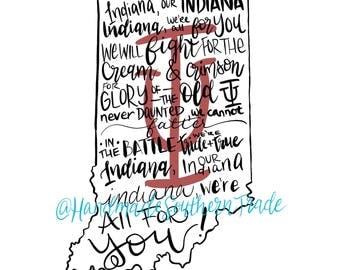 Indiana, OUR INDIANA
Indiana, we're all for YOU
WE WILL fight FOR THE
Cream & Crimson
FOR GLORY OF THE Old IU
never DAUNTED, we cannot
falter
• IN • THE BATTLE we're tride + True
Indiana, IN OUR Indiana
indiana, we're
@HandmadeSouthernTrade
All FOR
You!